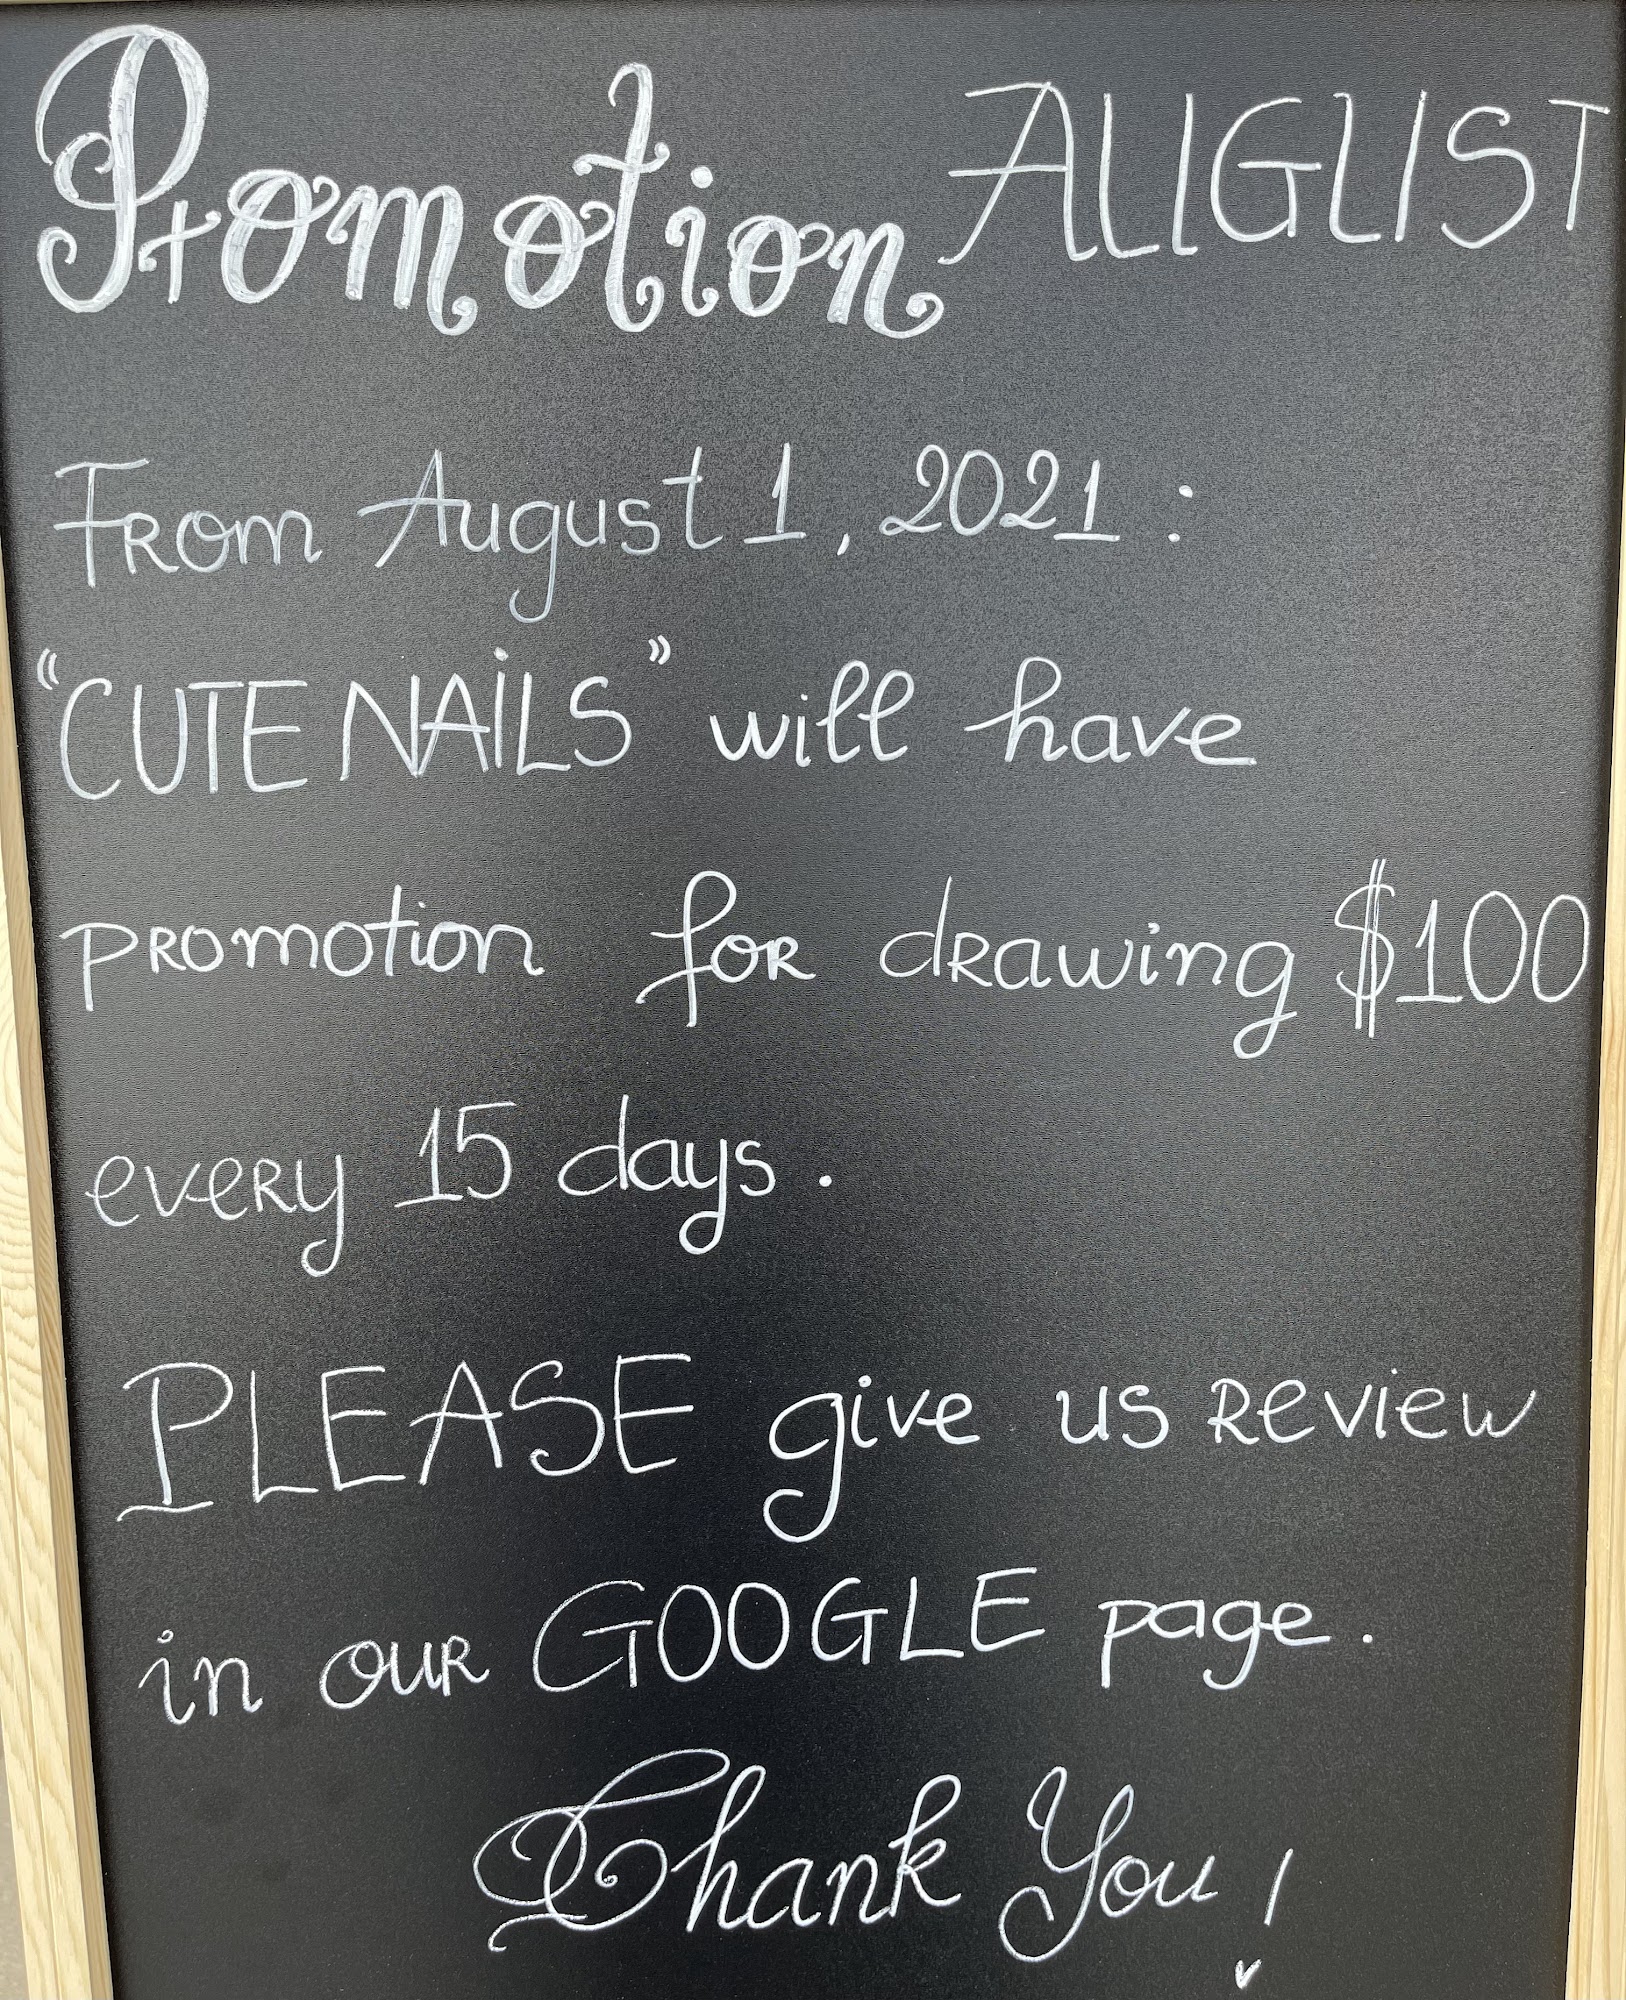 Promotion AUGUST
From August 1, 2021 :
"CUTE NAiLS" will have
promotion for drawing $100
every 15 days.
PLEASE give us review
in our GOOGLE page.
Thank You!